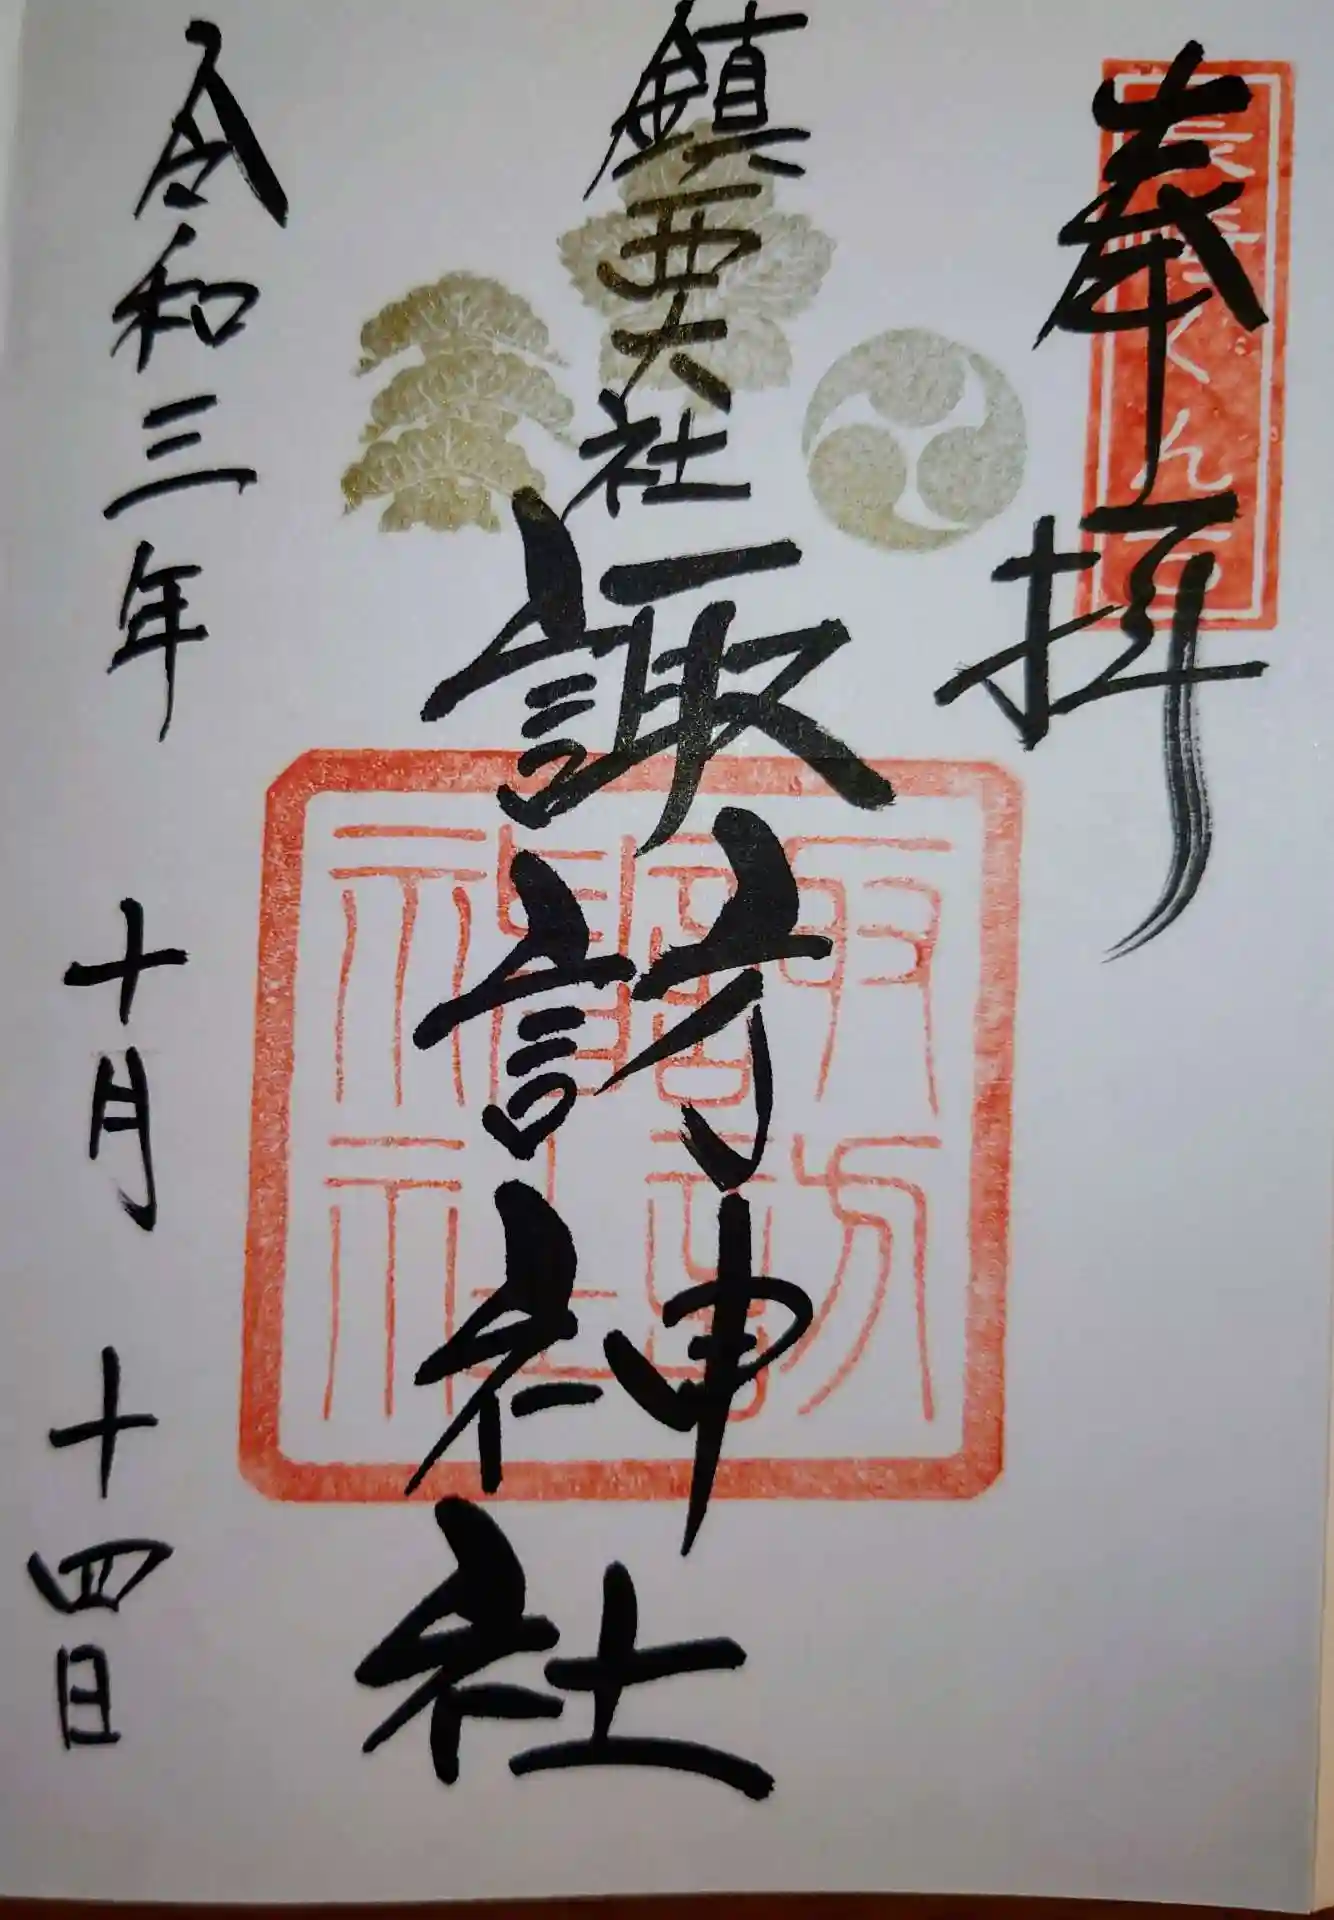 奉拝
長崎くんち
鎮西大社
諏訪神社
諏訪
神社
令和三年 十月 十四日